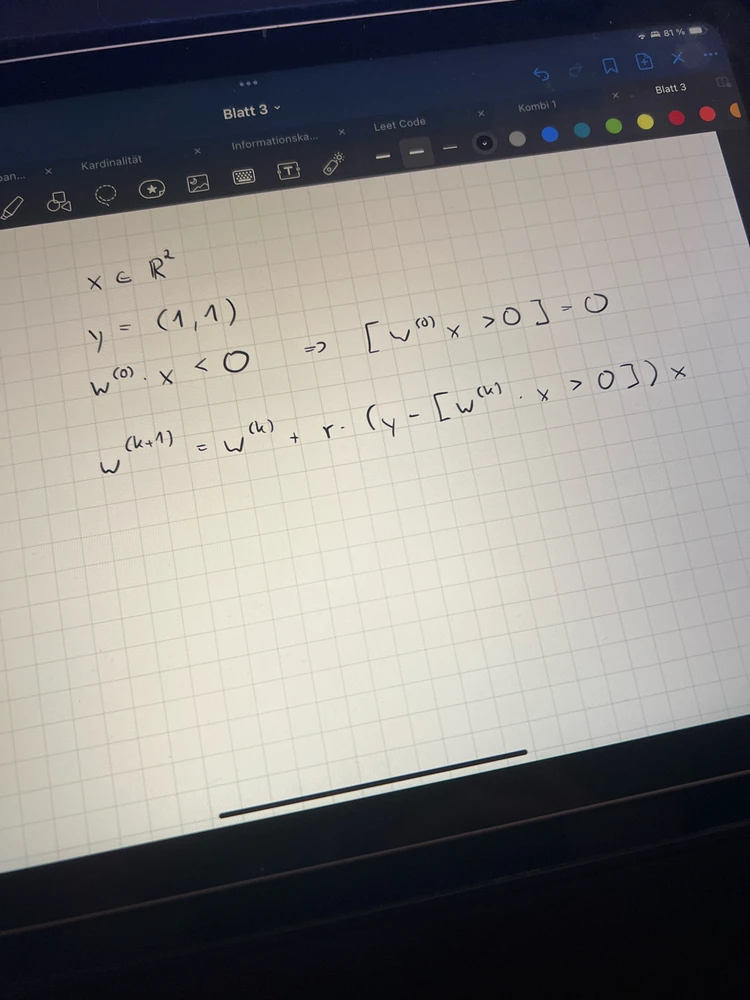 81 %
Blatt 3
Kardinalität
Informationska...
Leet Code
Kombi 1
Blatt 3
x ∈ ℝ²
y = (1,1)
w⁽⁰⁾ · x < 0 ⇒ [w⁽⁰⁾ x > 0] = 0
w⁽ᵏ⁺¹⁾ = w⁽ᵏ⁾ + r · (y - [w⁽ᵏ⁾ · x > 0]) x